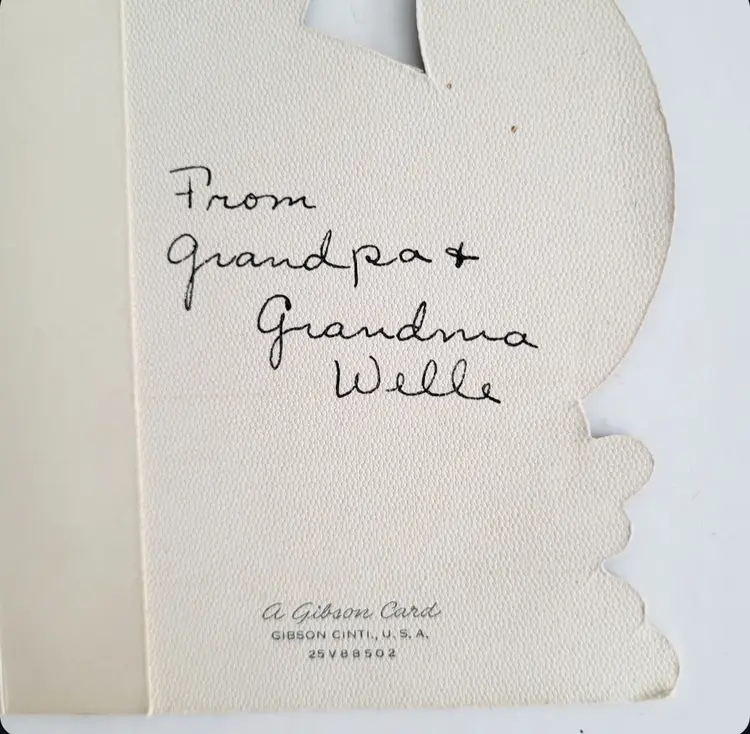 From
Grandpa +
Grandma
Welle
A Gibson Card
GIBSON CINTI., U. S. A.
25V88502